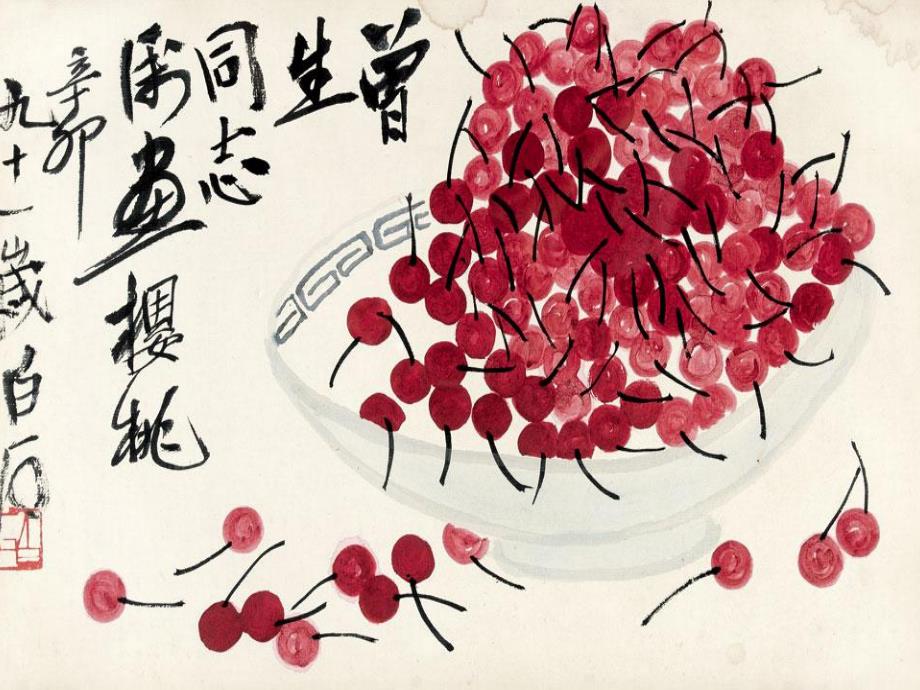 曾
生
同志
属畫
櫻桃
辛卯
九十一歲白石